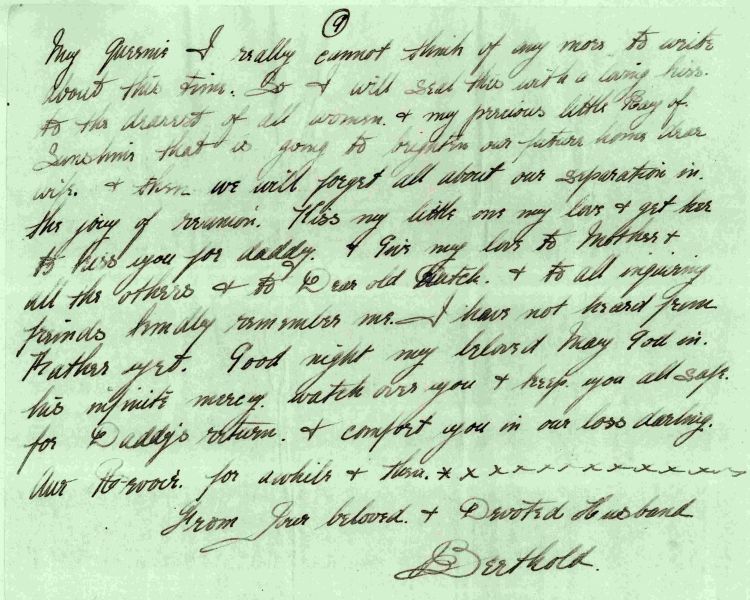 9
My Queenie I really cannot think of any more to write
about this time. So I will seal this with a loving kiss.
to the dearest of all women. & my precious little Ray of
Sunshine that is going to brighten our future home dear
wife. & then we will forget all about our separation in.
the joy of reunion. Kiss my little one my love & get her
to kiss you for daddy. & Give my love to Mother &
all the others & to Dear old Dutch. & to all inquiring
freinds kindly remember me. I have not heard from
Father yet. Good night my beloved May God in.
his infinite mercy. watch over you & keep you all safe.
for Daddy's return. & comfort you in our loss darling.
Aur Revoir. for awhile & then. x x x x x x x x x x x x
From Your beloved. & Devoted Husband
Berthold.